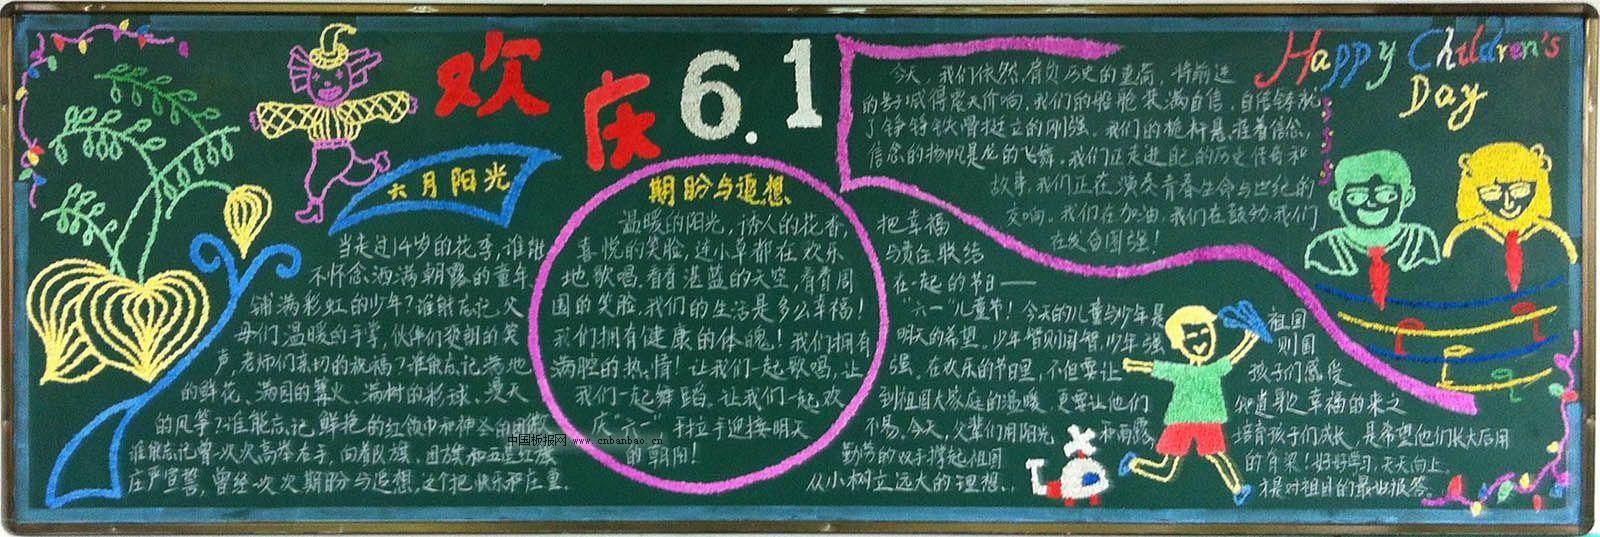 欢庆 6.1
Happy Children's
Day
六月阳光
当走过14岁的花季,谁能
不怀念洒满朝露的童年,
铺满彩虹的少年?谁能忘记父
母们温暖的手掌,伙伴们爽朗的笑
声,老师们亲切的祝福?谁能忘记满地
的鲜花、满园的篝火、满树的彩球、漫天
的风筝?谁能忘记,鲜艳的红领巾和神圣的团徽
谁能忘记曾一次次高举右手,向着队旗、团旗和五星红旗
庄严宣誓,曾经一次次期盼与追想,这个把快乐和庄重、
期盼与追想
温暖的阳光,诱人的花香
喜悦的笑脸,连小草都在欢乐
地歌唱.看看湛蓝的天空,看看周
围的笑脸,我们的生活是多么幸福!
我们拥有健康的体魄!我们拥有
满腔的热情!让我们一起歌唱,让
我们一起舞蹈,让我们一起欢
庆"六一",手拉手迎接明天
的朝阳!
中国板报网 www.cnbanbao.cn
把幸福
与责任联结
在一起的节日——
"六一"儿童节!今天的儿童与少年是祖国
明天的希望。少年智则国智,少年强则国
强。在欢乐的节日里,不但要让孩子们感受
到祖国大家庭的温暖,更要让他们知道歌幸福的来之
不易。今天,父辈们用阳光和雨露培育孩子们成长,是希望他们长大后用
勤劳的双手撑起祖国的脊梁!好好学习,天天向上.
从小树立远大的理想..才是对祖国的最好报答。
今天,我们依然肩负历史的重荷,将前进
的号子喊得震天价响.我们的船舱装满自信,自信铸就
了铮铮铁骨挺立的刚强。我们的桅杆悬挂着信念,
信念的扬帆是龙的飞舞。我们正走进自己的历史传奇和
故事,我们正在演奏青春生命与世纪的
交响。我们在加油,我们在鼓劲,我们
在发奋图强!